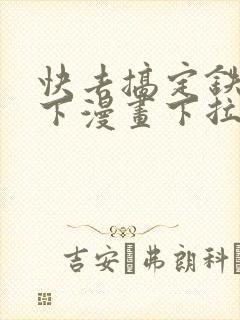 快去搞定鉄
下漫畫下拉
吉安·弗朗科